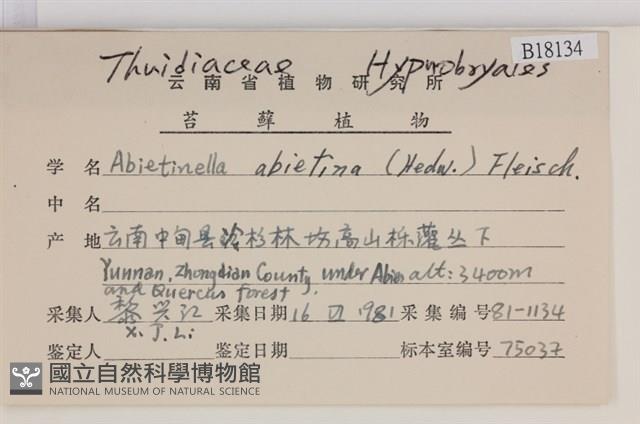 B18134
Thuidiaceae Hypnobryales
云南省植物研究所
苔藓植物
学名 Abietinella abietina (Hedw.) Fleisch.
中名
产地 云南中甸县冷杉林场高山栎灌丛下
Yunnan, Zhongdian County under Abies alt: 3400m
and Quercus forest.
采集人 黎兴江 采集日期 16 VI 1981 采集编号 81-1134
X. J. Li
鉴定人 鉴定日期 标本室编号 75037
國立自然科學博物館
NATIONAL MUSEUM OF NATURAL SCIENCE